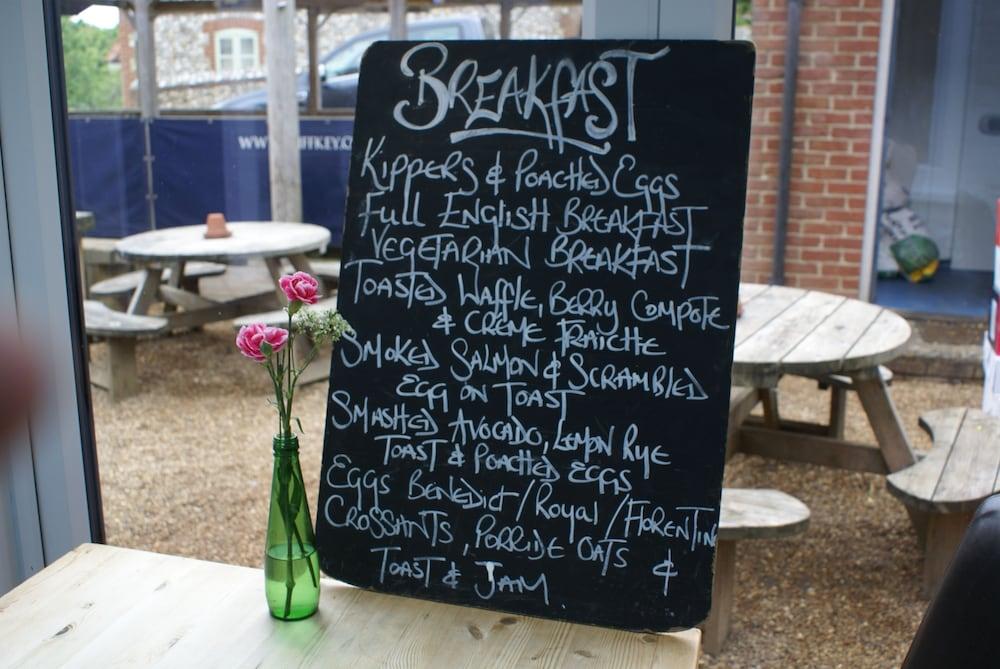 BREAKFAST
KIPPERS & POACHED EGGS
FULL ENGLISH BREAKFAST
VEGETARIAN BREAKFAST
TOASTED WAFFLE, BERRY COMPOTE
& CRÈME FRAICHE
SMOKED SALMON & SCRAMBLED
EGG ON TOAST
SMASHED AVOCADO, LEMON RYE
TOAST & POACHED EGGS
EGGS BENEDICT/ROYAL/FLORENTIN
CROSSIANTS, PORRIDE OATS &
TOAST & JAM